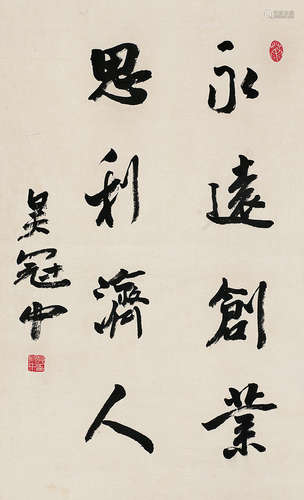 永遠創業
思利濟人
吳冠中